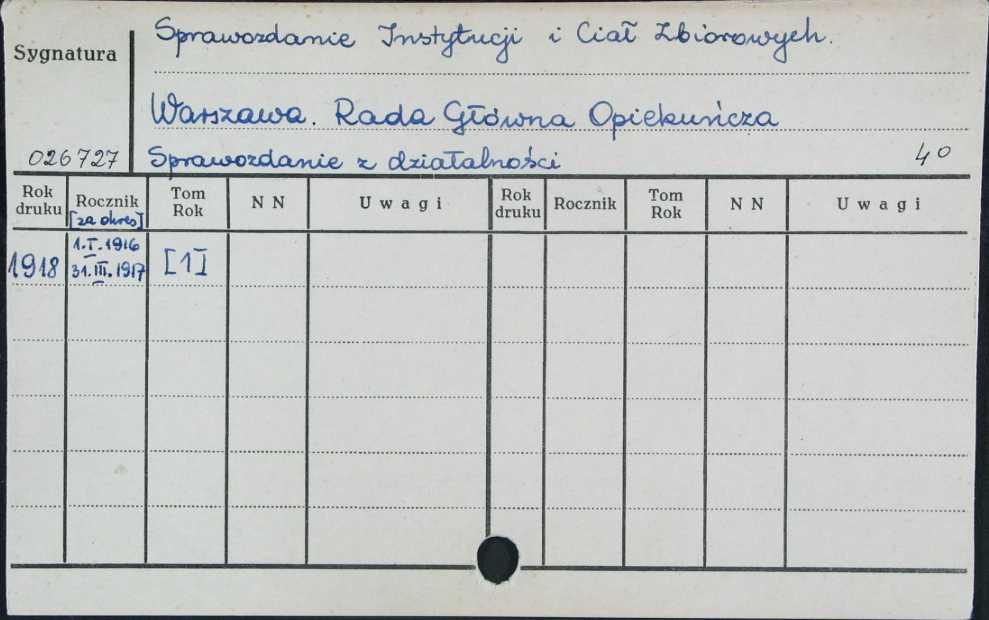 Sprawozdanie Instytucji i Ciał Zbiorowych.
Sygnatura
Warszawa. Rada Główna Opiekuńcza
026727 Sprawozdanie z działalności 4°
Rok druku Rocznik [za okres] Tom Rok N N Uwagi Rok druku Rocznik Tom Rok N N Uwagi
1918 1.I.1916 31.III.1917 [1]